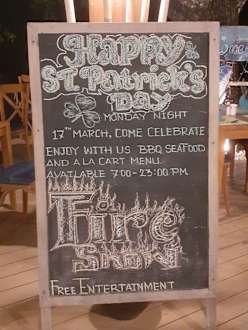 Happy
St. Patrick's
Day
MONDAY NIGHT
17TH MARCH, COME CELEBRATE
ENJOY WITH US BBQ SEAFOOD
AND A LA CART MENU.
AVAILABLE 7:00-23:00 PM
Fire
SHOW
FREE ENTERTAINMENT